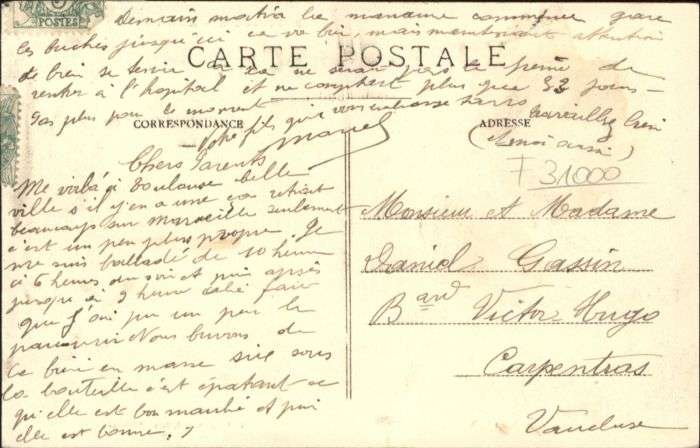 Demain matin la manœuvre commence gare
les huches jusqu'ici ca va bien, mais maintenant attention
CARTE POSTALE
de bien se tenir car ca ne serait pas la peine de
rentrer à l'hopital et ne comptant plus que 33 jours
Pas plus pour le moment
Votre fils qui vous embrasse
Marcel
CORRESPONDANCE
ADRESSE
Chers Parents
Me voilà à Toulouse belle
ville s'il y en a une ca retirait
beaucoup sur Marseille seulement
c'est un peu plus propre. Je
me suis balladé de 10 heure
à 6 heures du soir et puis après
jusque à 9 heure cela fait
que j'ai pu un peu la
parcourir. Nous buvons de
la bière en masse six sous
la bouteille c'est épatant ce
qu'elle est bon marché et puis
elle est bonne.
F 31000
Monsieur et Madame
Daniel Gassin
Bard Victor Hugo
Carpentras
Vaucluse
POSTES